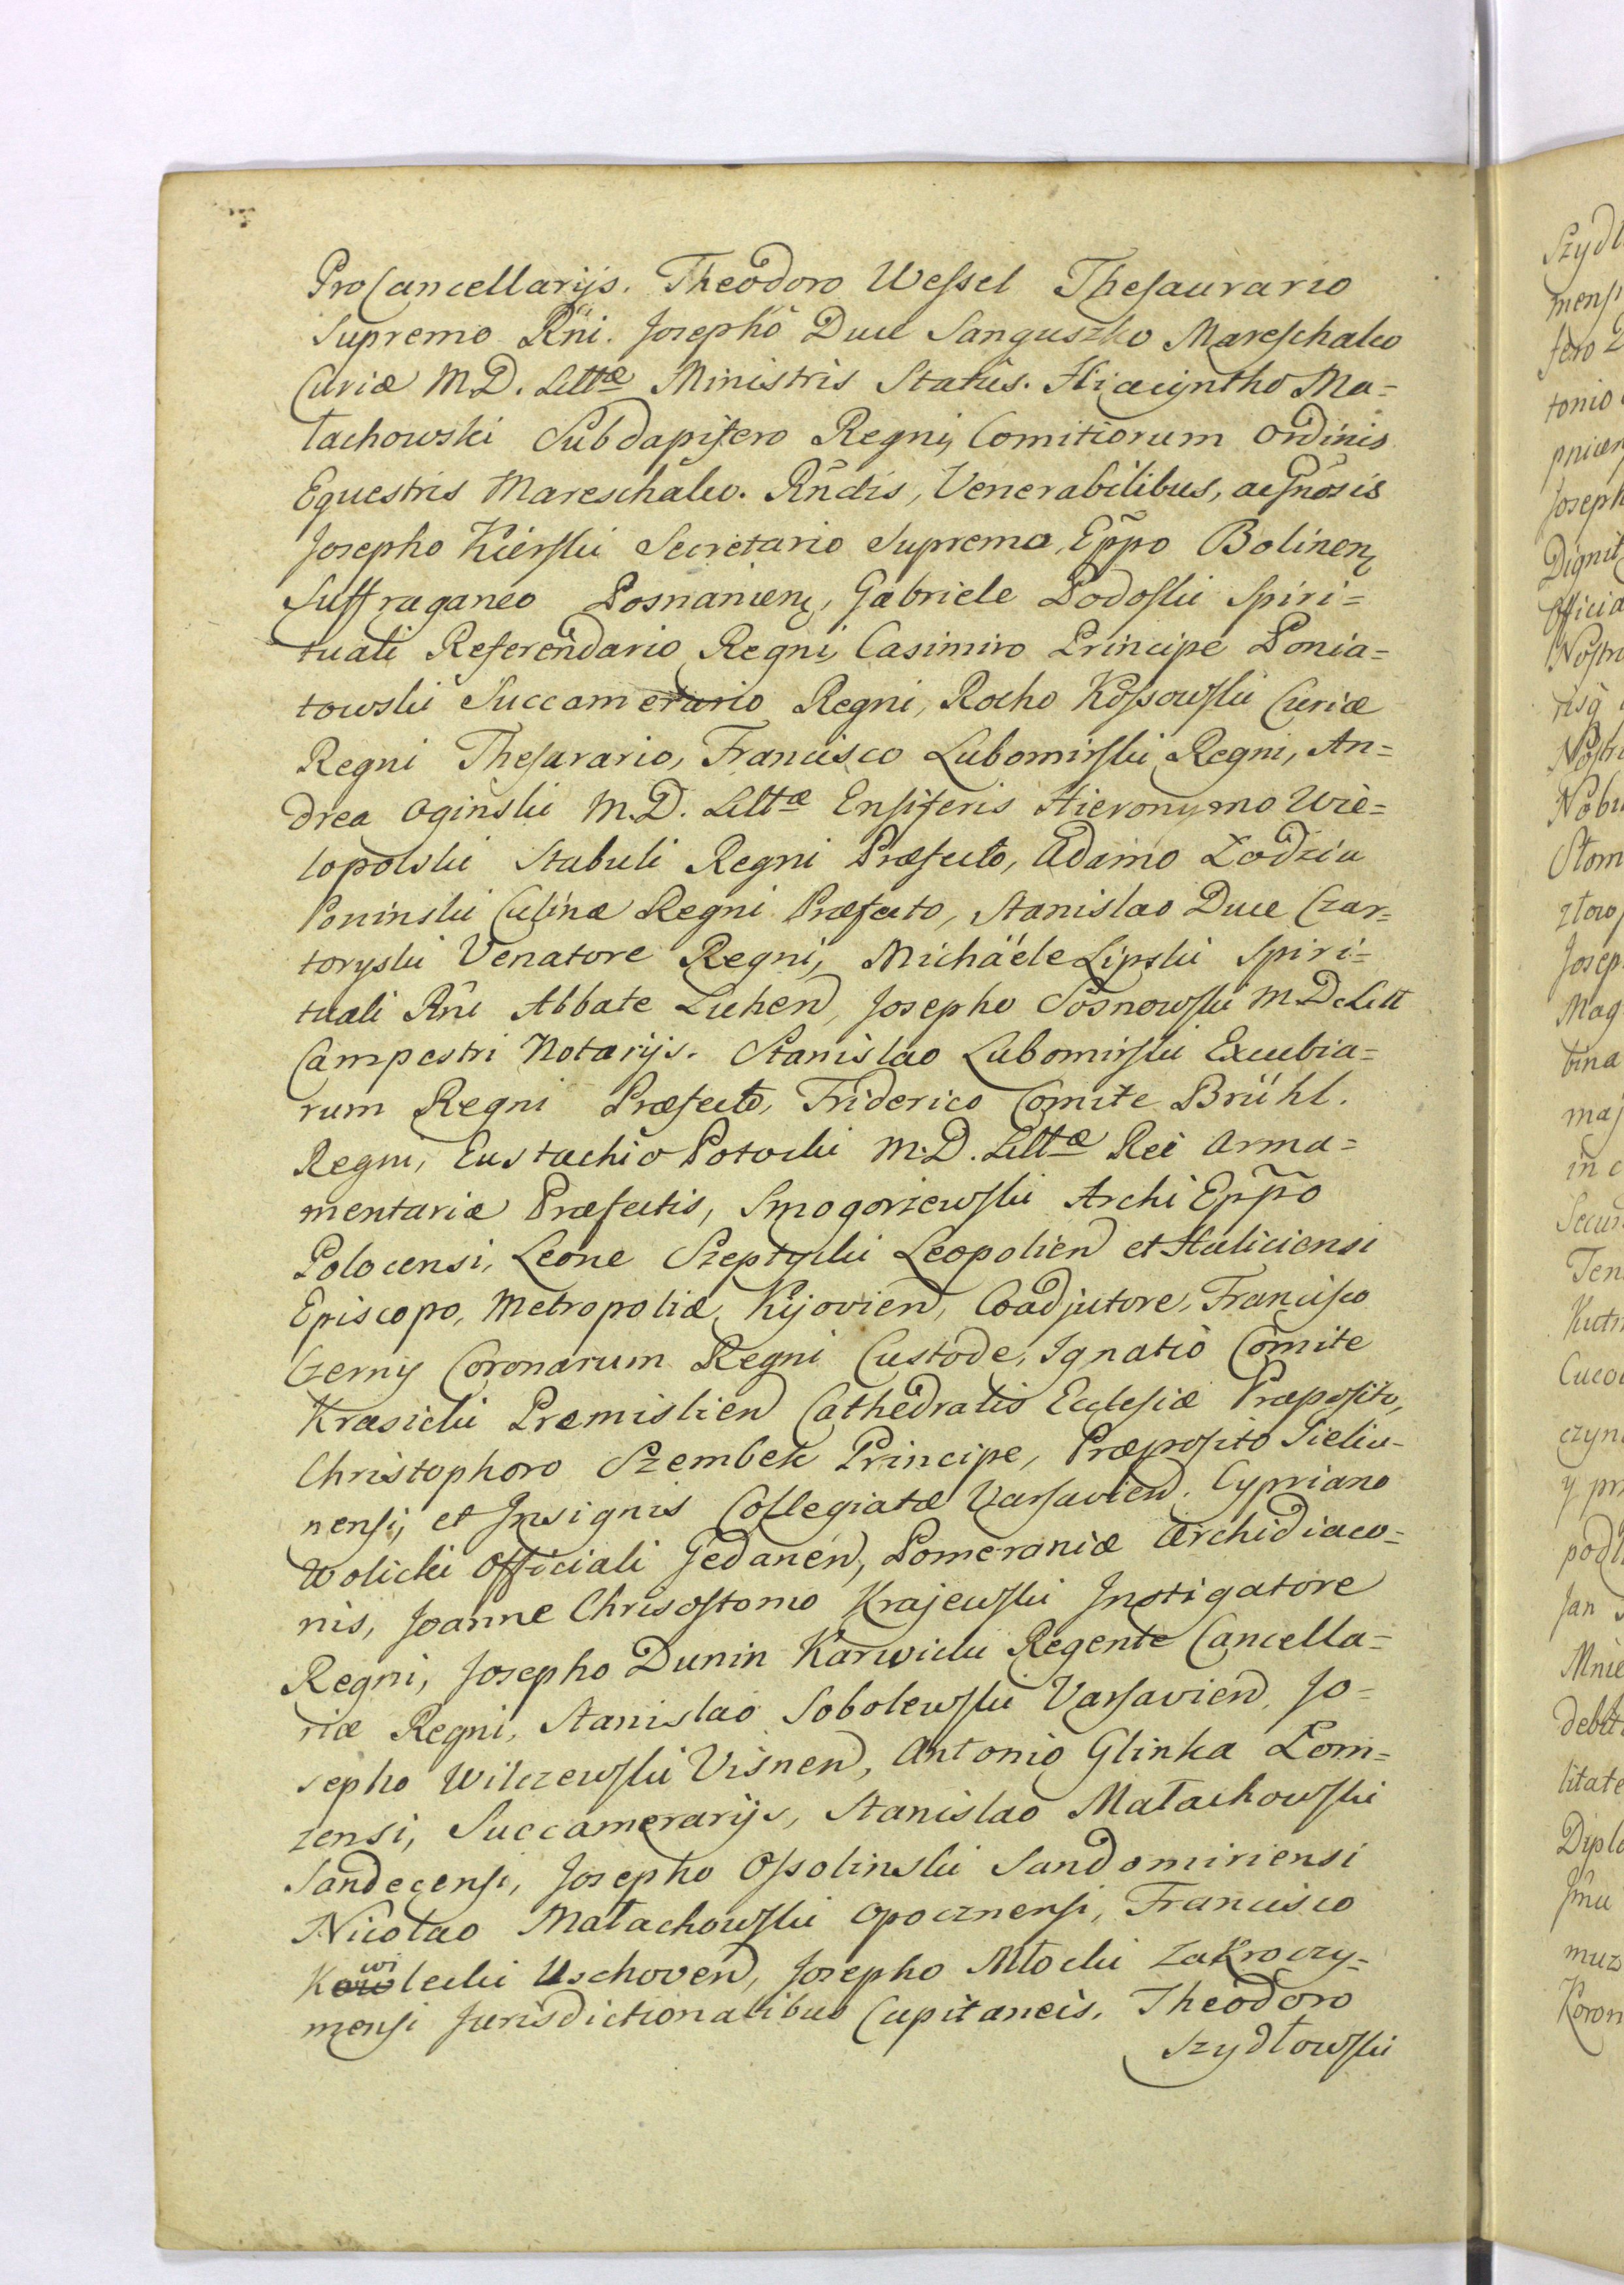 ProCancellarijs. Theodoro Wessel Thesaurario
Supremo Rñi. Josepho Duce Sanguszko Mareschalco
Curiæ M.D. Littæ Ministris Status. Hiacyntho Ma=
łachowski Subdapifero Regni, Comitiorum Ordinis
Equestris Mareschalco. Rñdis, Venerabilibus, ac Gñosis
Josepho Kierski Secretario Supremo, Eppo Bolinen
Suffraganeo Posnanien, Gabriele Podoski Spiri=
tuali Referendario Regni, Casimiro Principe Ponia=
towski Succamerario Regni, Rocho Kossowski Curiæ
Regni Thesarario, Francisco Lubomirski Regni, An=
drea Oginski M.D. Littæ Ensiferis Hieronymo Wie=
lopolski Stabuli Regni Præfecto, Adamo Łodzia
Poninski Culinæ Regni Præfecto, Stanislao Duce Czar=
toryski Venatore Regni, Michäele Lipski Spiri=
tuali Rñi Abbate Luben, Josepho Sosnowski M.D. Litt
Campestri Notarijs. Stanislao Lubomirski Excubia=
rum Regni Præfecto, Friderico Comite Brühl.
Regni, Eustachio Potocki M.D. Littæ Rei Arma=
mentariæ Præfectis, Smogorzewski Archi Eppo
Polocensi, Leone Szeptycki Leopolien et Haliciensi
Episcopo, Metropoliæ Kijovien, Coadjutore, Francisco
Czerny Coronarum Regni Custode, Ignatio Comite
Krasicki Premislien Cathedralis Ecclesiæ Præposito,
Christophoro Szembek Principe, Præposito Sielu-
nensi, et Insignis Collegiatæ Varsavien. Cypriano
Wolicki Officiali Gedanen, Pomeraniæ Archidiaco=
nis, Joanne Chrisostomo Krajewski Instigatore
Regni, Josepho Dunin Karwicki Regente Cancella=
riæ Regni, Stanislao Sobolewski Varsavien, Jo=
sepho Wilczewski Visnen, Antonio Glinka Lom=
zensi, Succamerarijs, Stanislao Małachowski
Sandecensi, Josepho Ossolinski Sandomiriensi
Nicolao Małachowski Opocznensi, Francisco
Kowi̶lecki Uschoven, Josepho Młocki Zakroczy=
mensi Jurisdictionalibus Capitaneis. Theodoro
Szydłowski